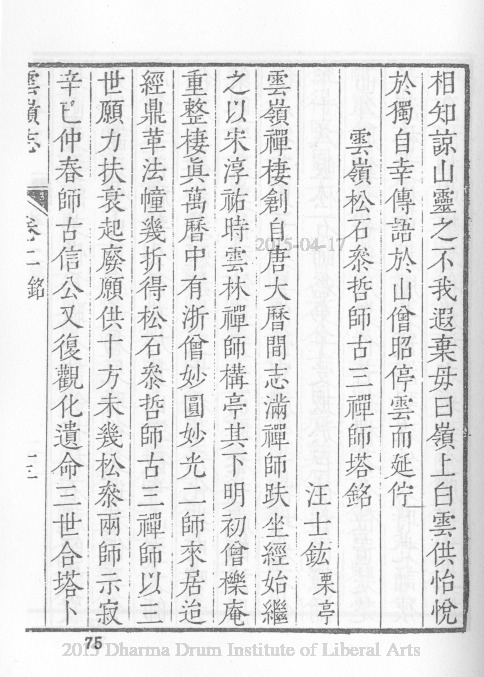 相知諒山靈之不我遐棄毋曰嶺上白雲供怡悅
於獨自幸傳語於山僧昭停雲而延佇
雲嶺松石叅哲師古三禪師塔銘
汪士鈜栗亭
雲嶺禪棲創自唐大曆間志滿禪師趺坐經始繼
之以宋淳祐時雲林禪師構亭其下明初僧櫟庵
重整棲眞萬曆中有浙僧妙圓妙光二師來居迨
經鼎革法幢幾折得松石叅哲師古三禪師以三
世願力扶衰起廢願供十方未幾松叅兩師示寂
辛巳仲春師古信公又復觀化遺命三世合塔卜
雲嶺志 卷二 銘 十三
75
2015-04-17
2015 Dharma Drum Institute of Liberal Arts